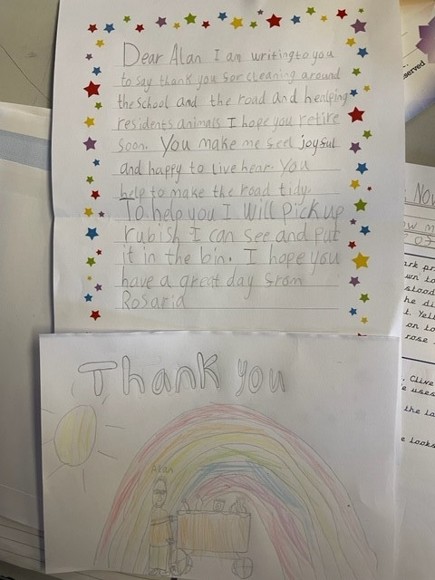 Dear Alan I am writing to you
to say thank you for cleaning around
the school and the road and healping
residents animals I hope you retire
soon. You make me feel joyful
and happy to live hear. You
help to make the road tidy.
To help you I will pick up
rubish I can see and put
it in the bin. I hope you
have a great day from
Rosaria
Thank you
Alan
served